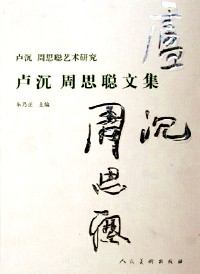 卢沉 周思聪艺术研究
卢沉 周思聪文集
朱乃正 主编
盧沉
周思聰
人民美术出版社